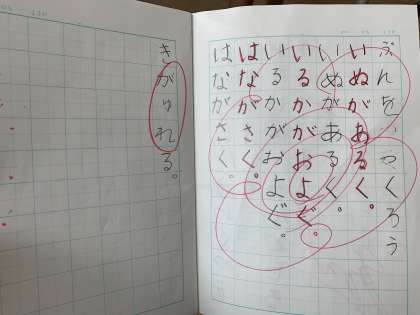 ぶんを、つくろう
いぬがあるく。
いぬがあるく。
いるかがおよぐ。
いるかがおよぐ。
はながさく。
はながさく。
きがゆれる。